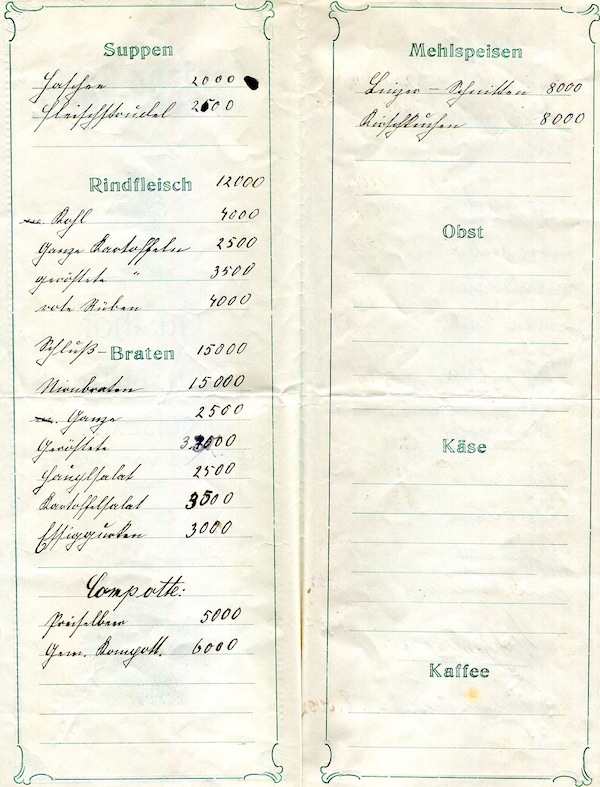 Suppen
Haschee 2000
Fleischstrudel 2500
Rindfleisch 12000
Kohl 4000
Ganze Kartoffeln 2500
geröstete " 3500
rote Rüben 4000
Schluß-Braten 15000
Niernbraten 15000
Ganze 2500
Geröstete
Häuplsalat 2500
Kartoffelsalat 3500
Essiggurken 3000
Compotte:
Preiselbeer 5000
Gem. Kompott. 6000
Mehlspeisen
Linzer-Schnitten 8000
Kirschkuchen 8000
Obst
Käse
Kaffee